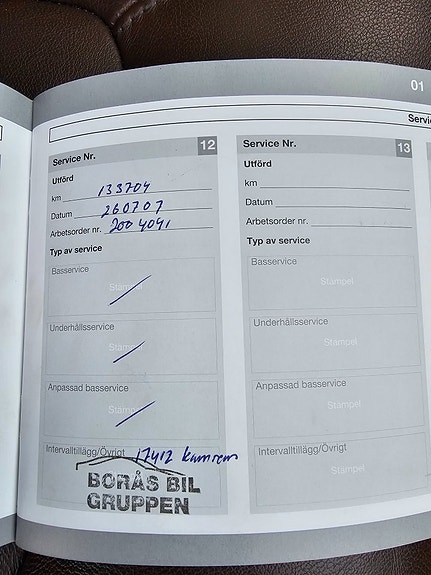 01
Servi
Service Nr. 12
Utförd
km 133704
Datum 260707
Arbetsorder nr. 2004041
Typ av service
Basservice
Stämpel
Underhållsservice
Stämpel
Anpassad basservice
Stämpel
Intervalltillägg/Övrigt 17412 kamrem
BORÅS BIL
GRUPPEN
Service Nr. 13
Utförd
km
Datum
Arbetsorder nr.
Typ av service
Basservice
Stämpel
Underhållsservice
Stämpel
Anpassad basservice
Stämpel
Intervalltillägg/Övrigt
Stämpel